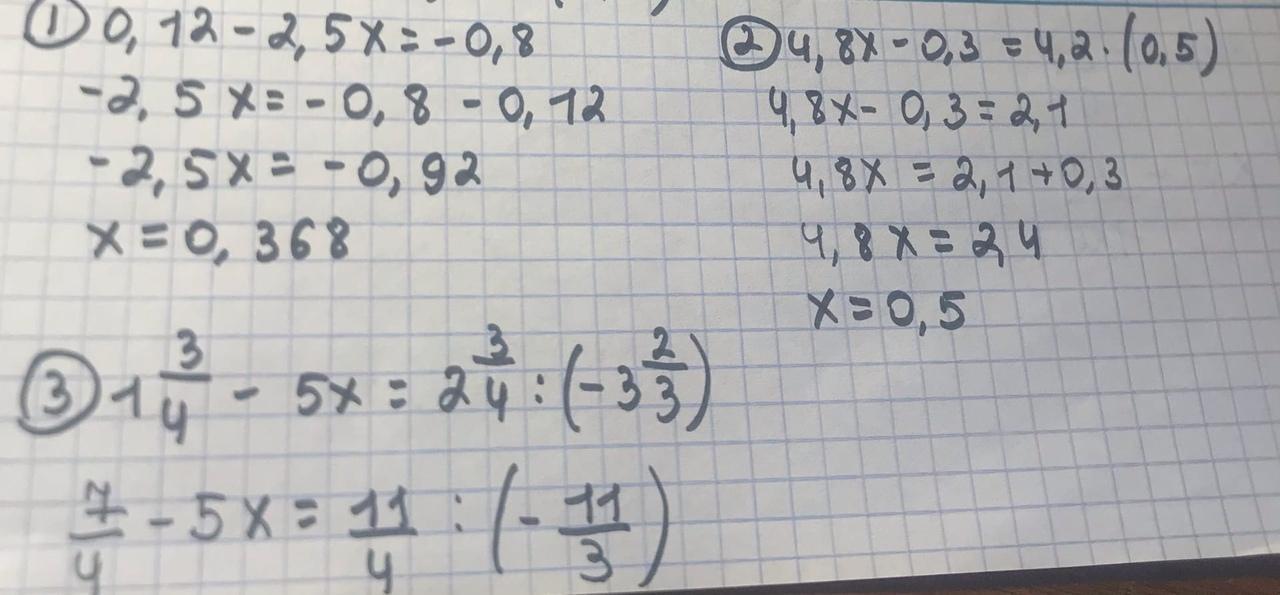 ① 0,12 - 2,5x = -0,8
-2,5x = -0,8 - 0,12
-2,5x = -0,92
x = 0,368
② 4,8x - 0,3 = 4,2 · (0,5)
4,8x - 0,3 = 2,1
4,8x = 2,1 + 0,3
4,8x = 2,4
x = 0,5
③ 1 3/4 - 5x = 2 3/4 : (-3 2/3)
7/4 - 5x = 11/4 : (-11/3)